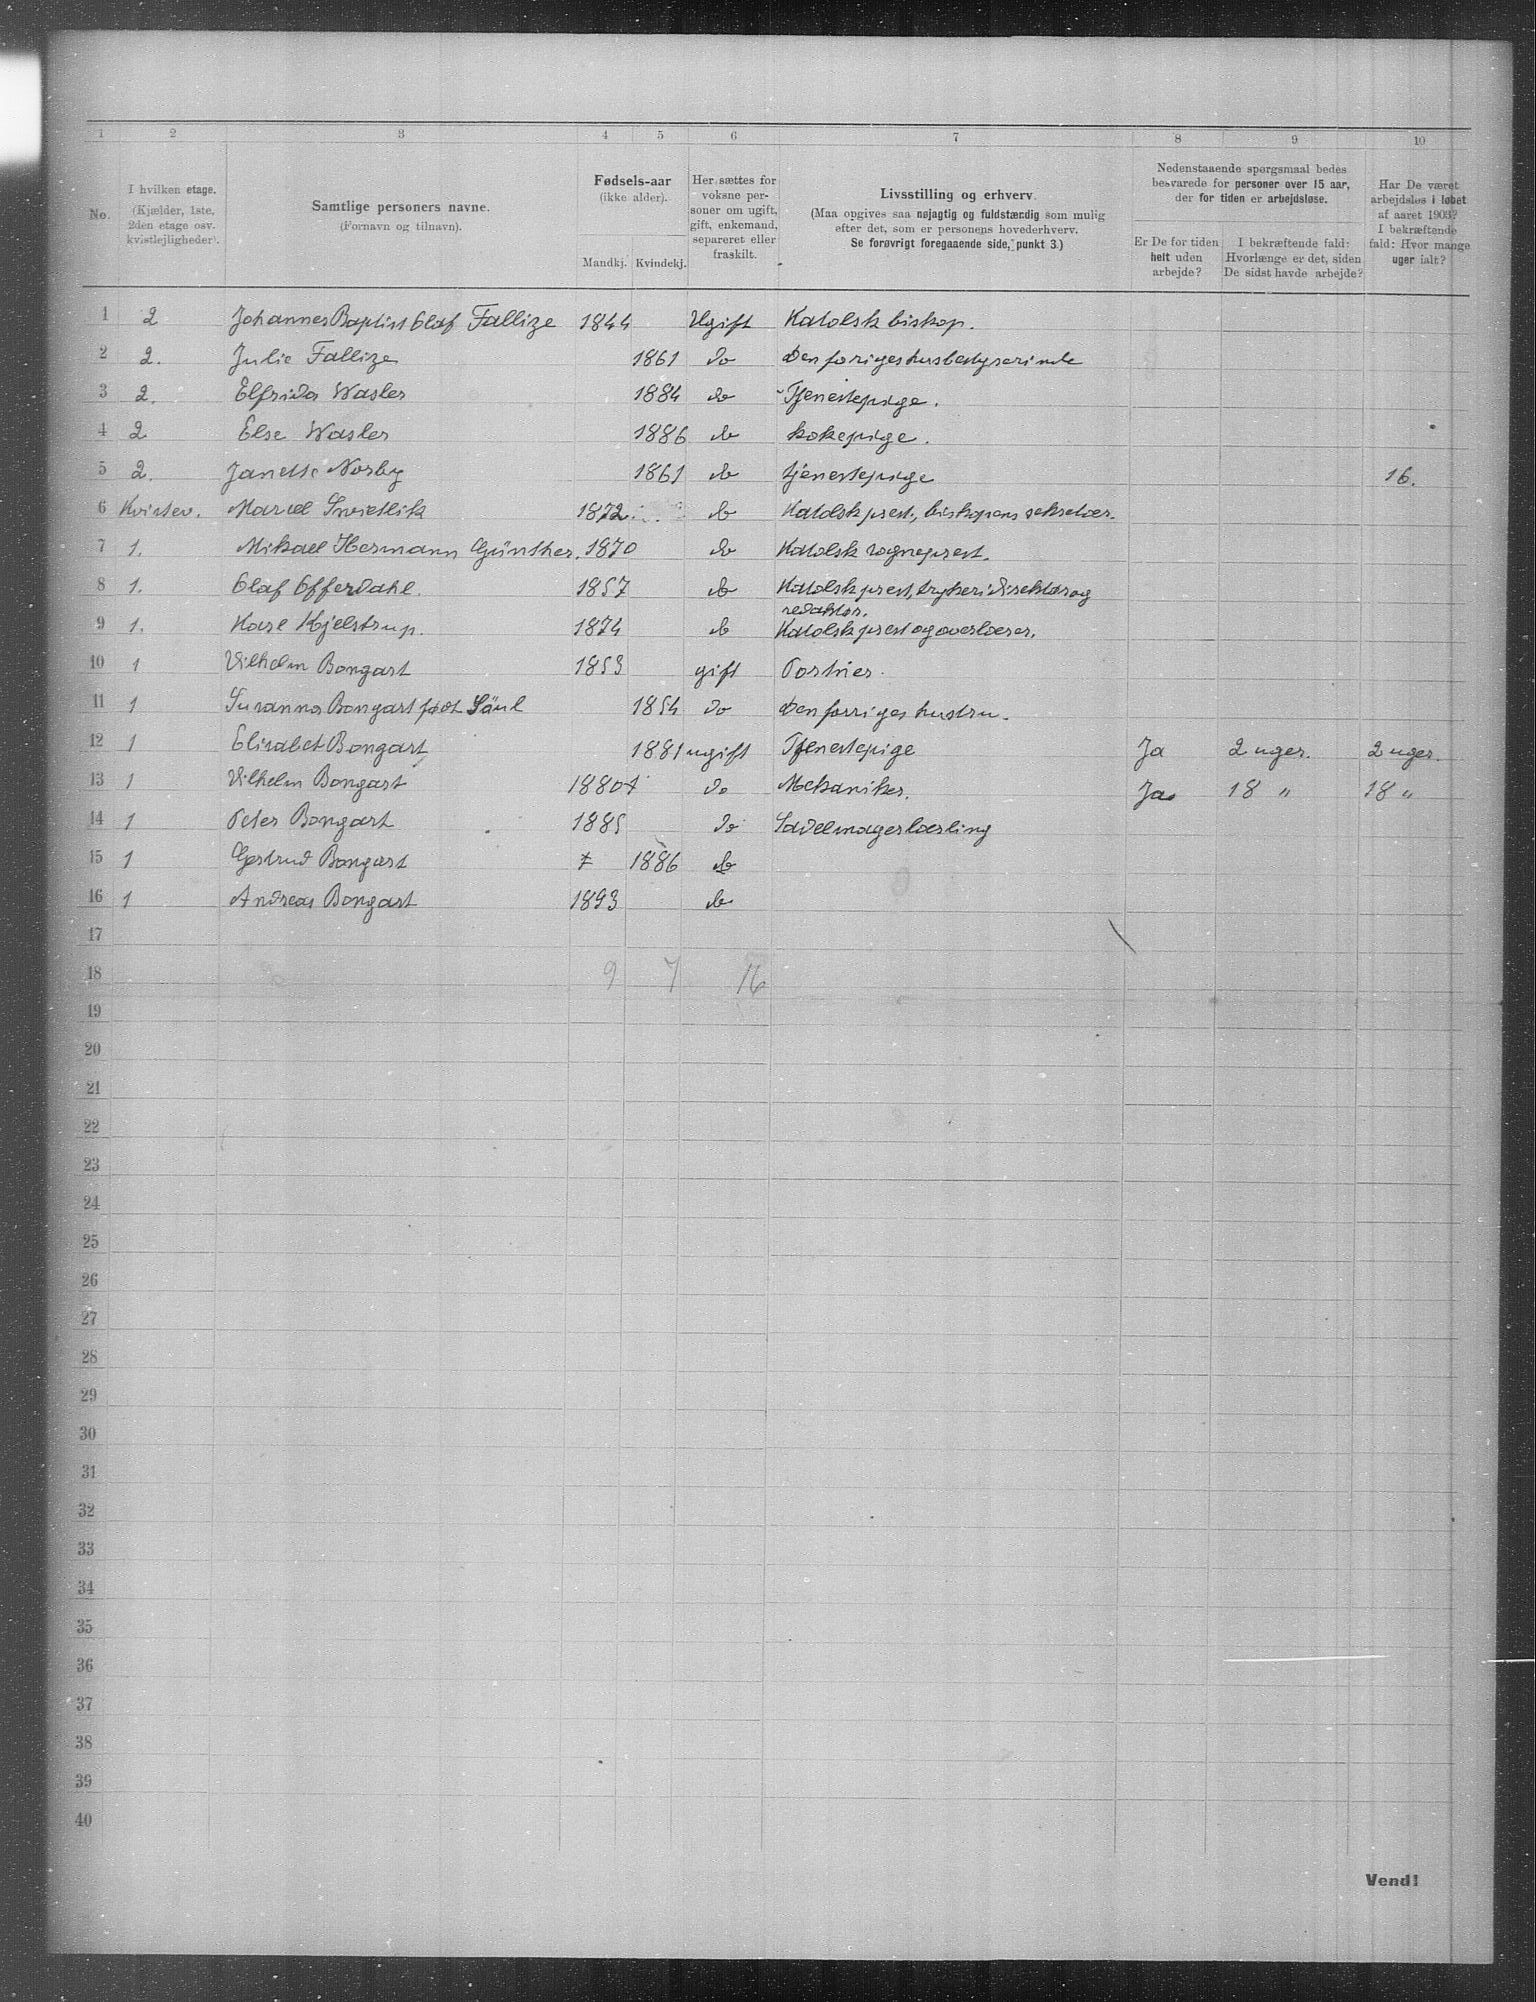 1 2 3 4 5 6 7 8 9 10
No.
I hvilken etage.
(Kjælder, 1ste,
2den etage osv.
kvistlejligheder).
Samtlige personers navne.
(Fornavn og tilnavn).
Fødsels-aar
(ikke alder).
Mandkj. Kvindekj.
Her sættes for
voksne per-
soner om ugift,
gift, enkemand,
separeret eller
fraskilt.
Livsstilling og erhverv
(Maa opgives saa nøjagtig og fuldstændig som mulig
efter det, som er personens hovederhverv.
Se forøvrigt foregaaende side, punkt 3.)
Nedenstaaende spørgsmaal bedes
besvarede for personer over 15 aar,
der for tiden er arbejdsløse.
Er De for tiden
helt uden
arbejde?
I bekræftende fald:
Hvorlænge er det, siden
De sidst havde arbejde?
Har De været
arbejdsløs i løbet
af aaret 1903?
I bekræftende
fald: Hvor mange
uger ialt?
1 2 Johannes Baptist Olaf Fallize 1844 Ugift Katolsk biskop.
2 2. Julie Fallize 1861 do Den foriges husbestyserinde
3 2. Elfrida Wasler 1884 do Tjenestepige.
4 2 Else Wasler 1886 do kokepige.
5 2. Janette Norby 1861 do tjenestepige 16.
6 Kvistev. Marcel Sвietlik 1872 do Katolsk prest, biskopens sekretær.
7 1. Mikael Hermann Günther. 1870 do Katolsk sogneprest.
8 1. Olaf Offerdahl. 1857 do Katolsk prest, trykeridirektør og
redaktør.
9 1. Karl Kjelstrup. 1874 do Katolsk prest og overlærer.
10 1 Vilhelm Bongart 1853 gift Portner.
11 1 Susanna Bongart født Säul 1854 do Den forriges hustru.
12 1 Elisabet Bongart 1881 ugift Tjenestepige Ja 2 uger. 2 uger.
13 1 Vilhelm Bongart 1880 do Mekaniker. Ja 18 " 18 "
14 1 Peter Bongart 1885 do Sadelmagerlærling
15 1 Gertrud Bongart 1886 do
16 1 Andreas Bongart 1893 do
17
18 9 7 16
19
20
21
22
23
24
25
26
27
28
29
30
31
32
33
34
35
36
37
38
39
40
Vend!